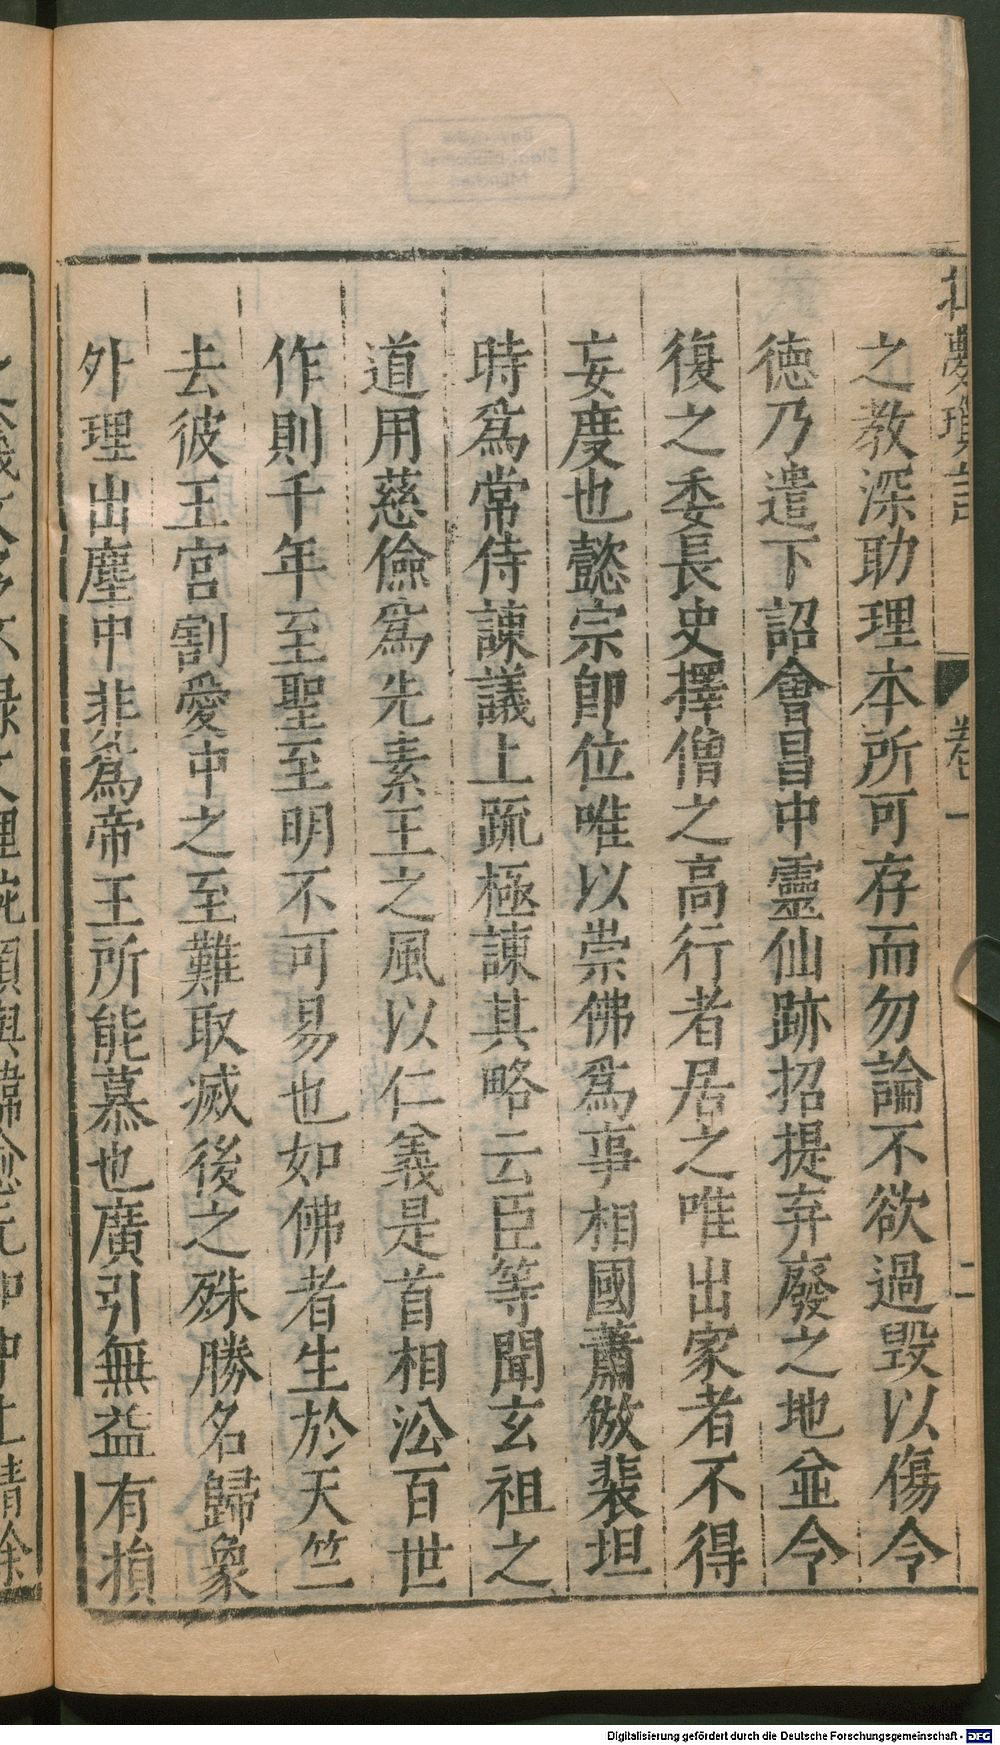 北夢瑣言
卷一
二
之教深助理本所可存而勿論不欲過毀以傷令
德乃遣下詔會昌中靈仙跡招提弃廢之地並令
復之委長史擇僧之高行者居之唯出家者不得
妄度也懿宗卽位唯以崇佛爲事相國蕭倣裴坦
時爲常侍諫議上䟽極諫其略云臣等聞玄祖之
道用慈儉爲先素王之風以仁義是首相㳂百世
作則千年至聖至明不可易也如佛者生於天竺
去彼王宮割愛中之至難取滅後之殊勝名歸象
外理出塵中非爲帝王所能慕也廣引無益有損
Digitalisierung gefördert durch die Deutsche Forschungsgemeinschaft - DFG